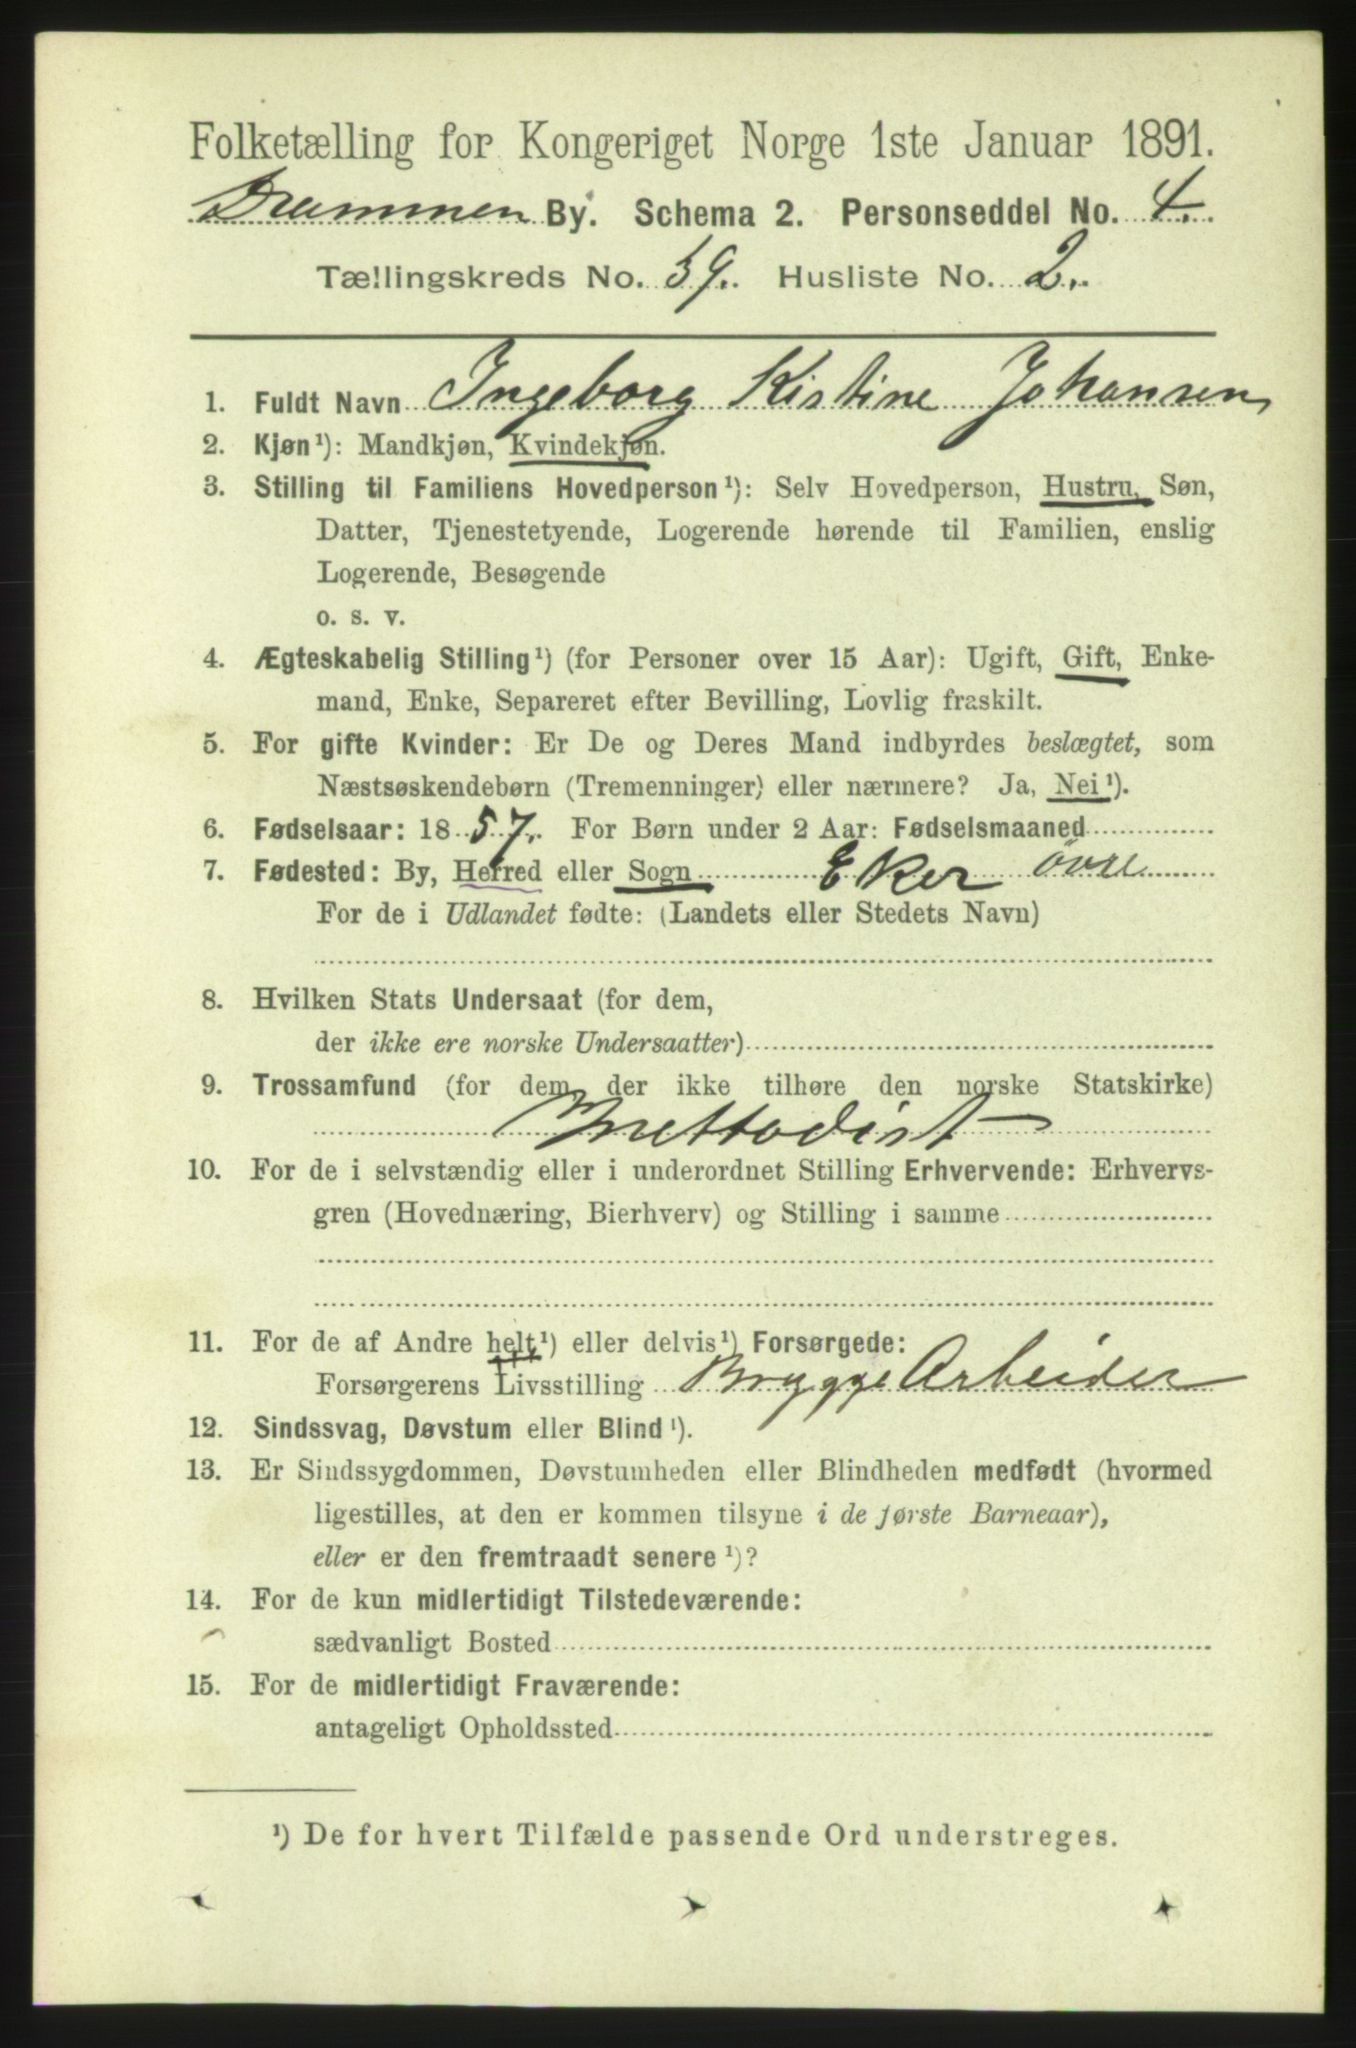 Folketælling for Kongeriget Norge 1ste Januar 1891.
Drammen By. Schema 2. Personseddel No. 4.
Tællingskreds No. 59. Husliste No. 2.
1. Fuldt Navn Ingeborg Kistine Johansen
2. Kjøn¹): Mandkjøn, Kvindekjøn.
3. Stilling til Familiens Hovedperson¹): Selv Hovedperson, Hustru, Søn,
Datter, Tjenestetyende, Logerende hørende til Familien, enslig
Logerende, Besøgende
o. s. v.
4. Ægteskabelig Stilling¹) (for Personer over 15 Aar): Ugift, Gift, Enke-
mand, Enke, Separeret efter Bevilling, Lovlig fraskilt.
5. For gifte Kvinder: Er De og Deres Mand indbyrdes beslægtet, som
Næstsøskendebørn (Tremenninger) eller nærmere? Ja, Nei¹).
6. Fødselsaar: 1857. For Børn under 2 Aar: Fødselsmaaned
7. Fødested: By, Herred eller Sogn Eker övre
For de i Udlandet fødte: (Landets eller Stedets Navn)
8. Hvilken Stats Undersaat (for dem,
der ikke ere norske Undersaatter)
9. Trossamfund (for dem der ikke tilhøre den norske Statskirke)
Mettodist
10. For de i selvstændig eller i underordnet Stilling Erhvervende: Erhvervs-
gren (Hovednæring, Bierhverv) og Stilling i samme
11. For de af Andre helt¹) eller delvis¹) Forsørgede:
Forsørgerens Livsstilling BryggeArbeider
12. Sindssvag, Døvstum eller Blind¹).
13. Er Sindssygdommen, Døvstumheden eller Blindheden medfødt (hvormed
ligestilles, at den er kommen tilsyne i de første Barneaar),
eller er den fremtraadt senere¹)?
14. For de kun midlertidigt Tilstedeværende:
sædvanligt Bosted
15. For de midlertidigt Fraværende:
antageligt Opholdssted
¹) De for hvert Tilfælde passende Ord understreges.